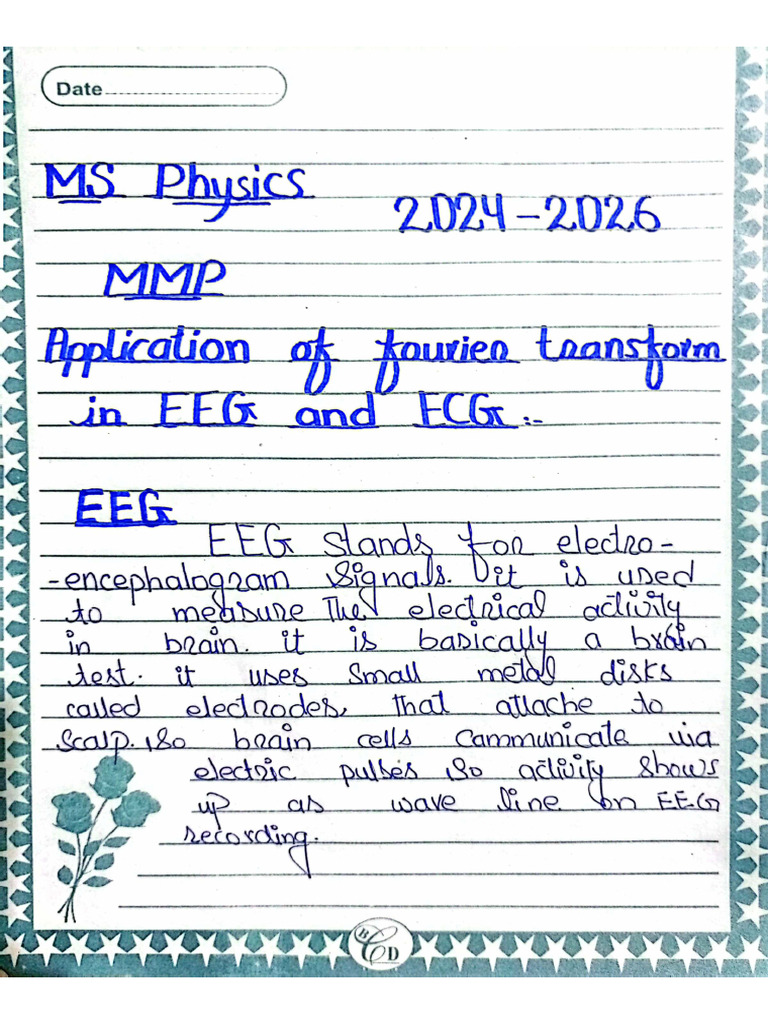 Date
MS Physics
2024-2026
MMP
Application of fourier transform
in EEG and ECG:-
EEG
EEG stands for electro-
-encephalogram signals. it is used
to measure the electrical activity
in brain. it is basically a brain
test. it uses small metal disks
called electrodes, that attache to
scalp. so brain cells communicate via
electric pulses so activity shows
up as wave line on EEG
recording.
B C D